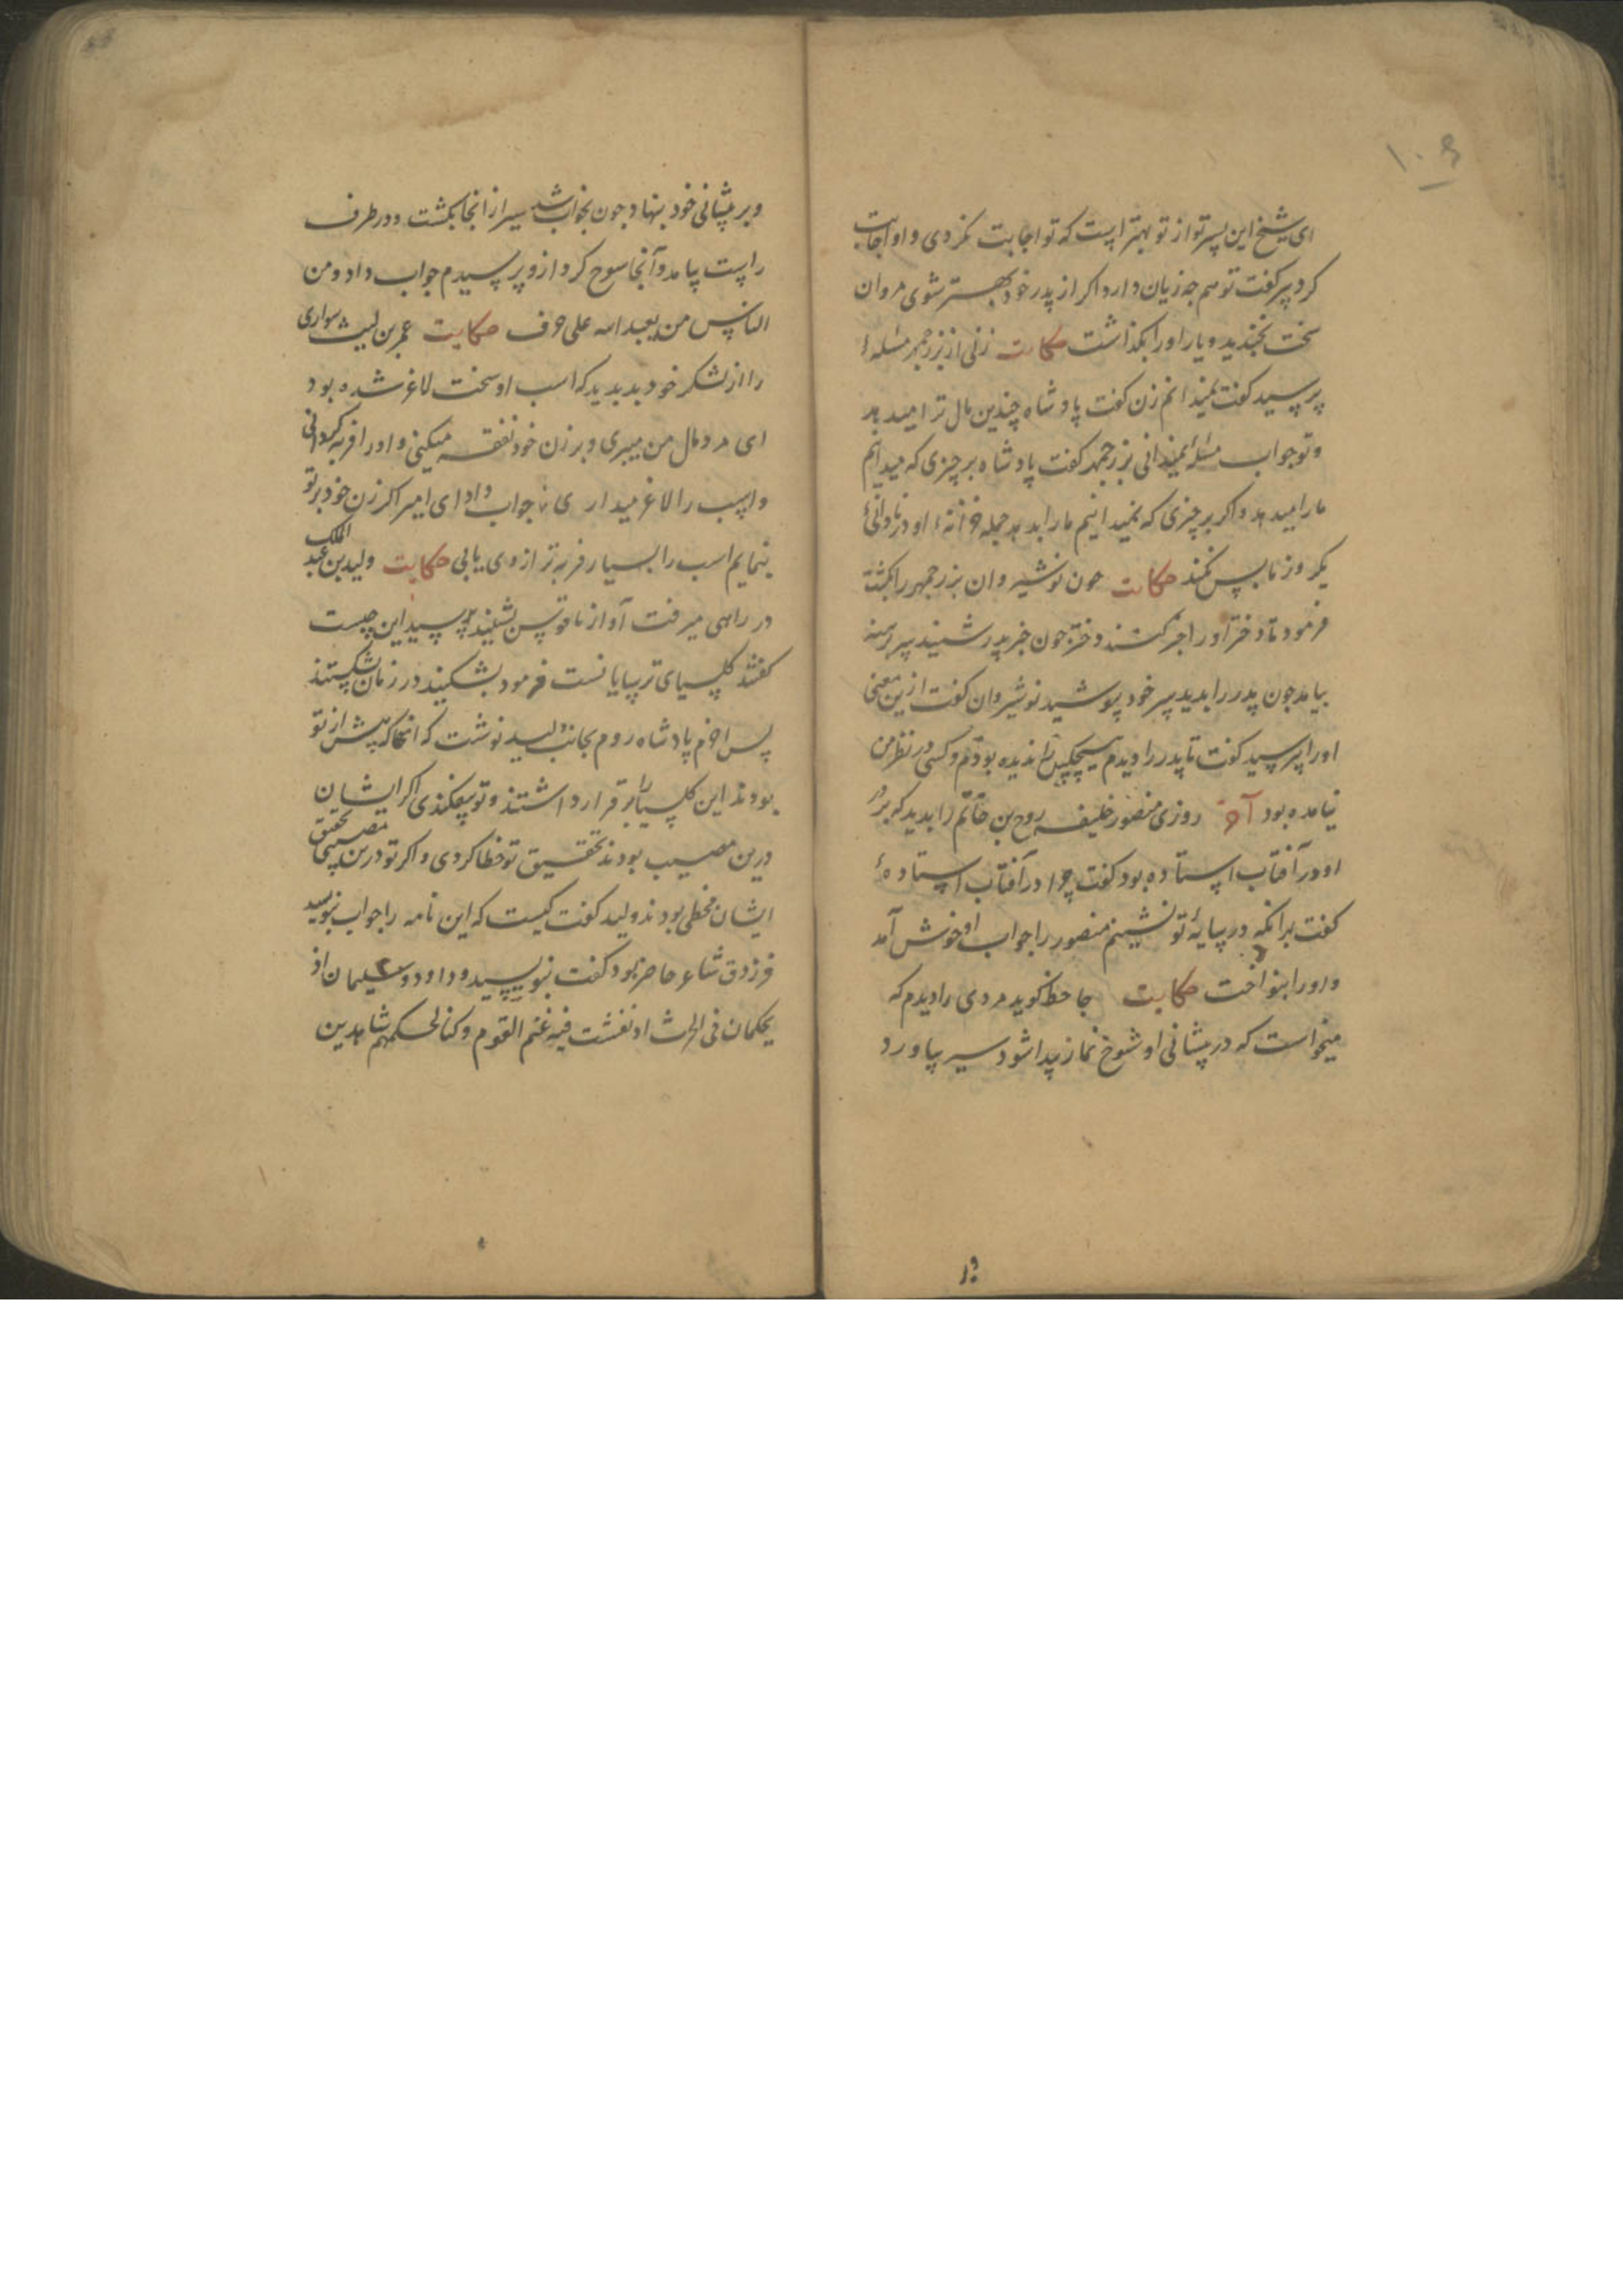 ۱۰۶
ای شیخ این پسر تو از تو بهتر است که تو اجابت نکردی و او اجابت
کرد پیر گفت تو هم چه زیان دارد اگر از پدر خود بهتر شوی مروان
سخت بخندید و یار او را بگذاشت حکایت زنی از بزرجمهر مسئلهٔ
پرسید گفت نمیدانم زن گفت پادشاه چندین مال ترا میدهد
و تو جواب مسئله نمیدانی بزرجمهر گفت پادشاه بر چیزی که میدانم
مارا میدهد و اگر بر چیزی که نمیدانیم مارا بدهد جمله خزانهٔ او در نادانیٔ
یکروز ما بس نکند حکایت چون نوشیروان بزرجمهر را بکشت
فرمود تا دختر او را کشند دختر چون خبر پدر شنید سر برهنه
بیامد چون پدر را بدید سر خود پوشید نوشیروان گفت ازین معنی
او را پرسید گفت تا پدر را دیدم هیچکس را ندیده بودم و کسی در نظر من
نیامده بود آخر روزی منصور خلیفه روح بن حاتم را بدید که بر در
او در آفتاب ایستاده بود گفت چرا در آفتاب ایستادهٔ
گفت برانکه در سایهٔ تو نشینم منصور را جواب او خوش آمد
و او را بنواخت حکایت جاحظ گوید مردی را دیدم که
میخواست که در پیشانی او شوخ نماز پیدا شود سیر بیاورد
وبر
وبر پیشانی خود بنهاد چون بخواب شد سیر از انجا بگشت و در طرف
راست بیامد و آنجا شوخ کرد ازو پرسیدم جواب داد و من
الناس من یعبد الله علی حرف حکایت عمر بن لیث سواری
را از لشکر خود بدید که اسب او سخت لاغر شده بود
ای مرد مال من میبری و بر زن خود نفقه میکنی و او را فربه گردانی
و اسب را لاغر میداری جواب داد ای امیر اگر زن خود بر تو
بنمایم اسب را بسیار فربه تر از وی یابی حکایت ولید بن عبد الملک
در راهی میرفت آواز ناقوس بشنید پرسید این چیست
گفتند کلیسیای ترسایانست فرمود بشکنید در زمان بشکستند
پس اخرم پادشاه روم بجانب ولید نوشت که انها که پیش از تو
بودند این کلیسیا را برقرار داشتند و تو بیفکندی اگر ایشان
درین مصیب بودند تحقیق تو خطا کردی و اگر تو درین مصیبی تحقیق
ایشان مخطی بودند ولید گفت کیست که این نامه را جواب نویسد
فرزدق شاعر حاضر بود گفت بنویسید و داود و سلیمان اذ
یحکمان فی الحرث اذ نفشت فیه غنم القوم و کنا لحکمهم شاهدین